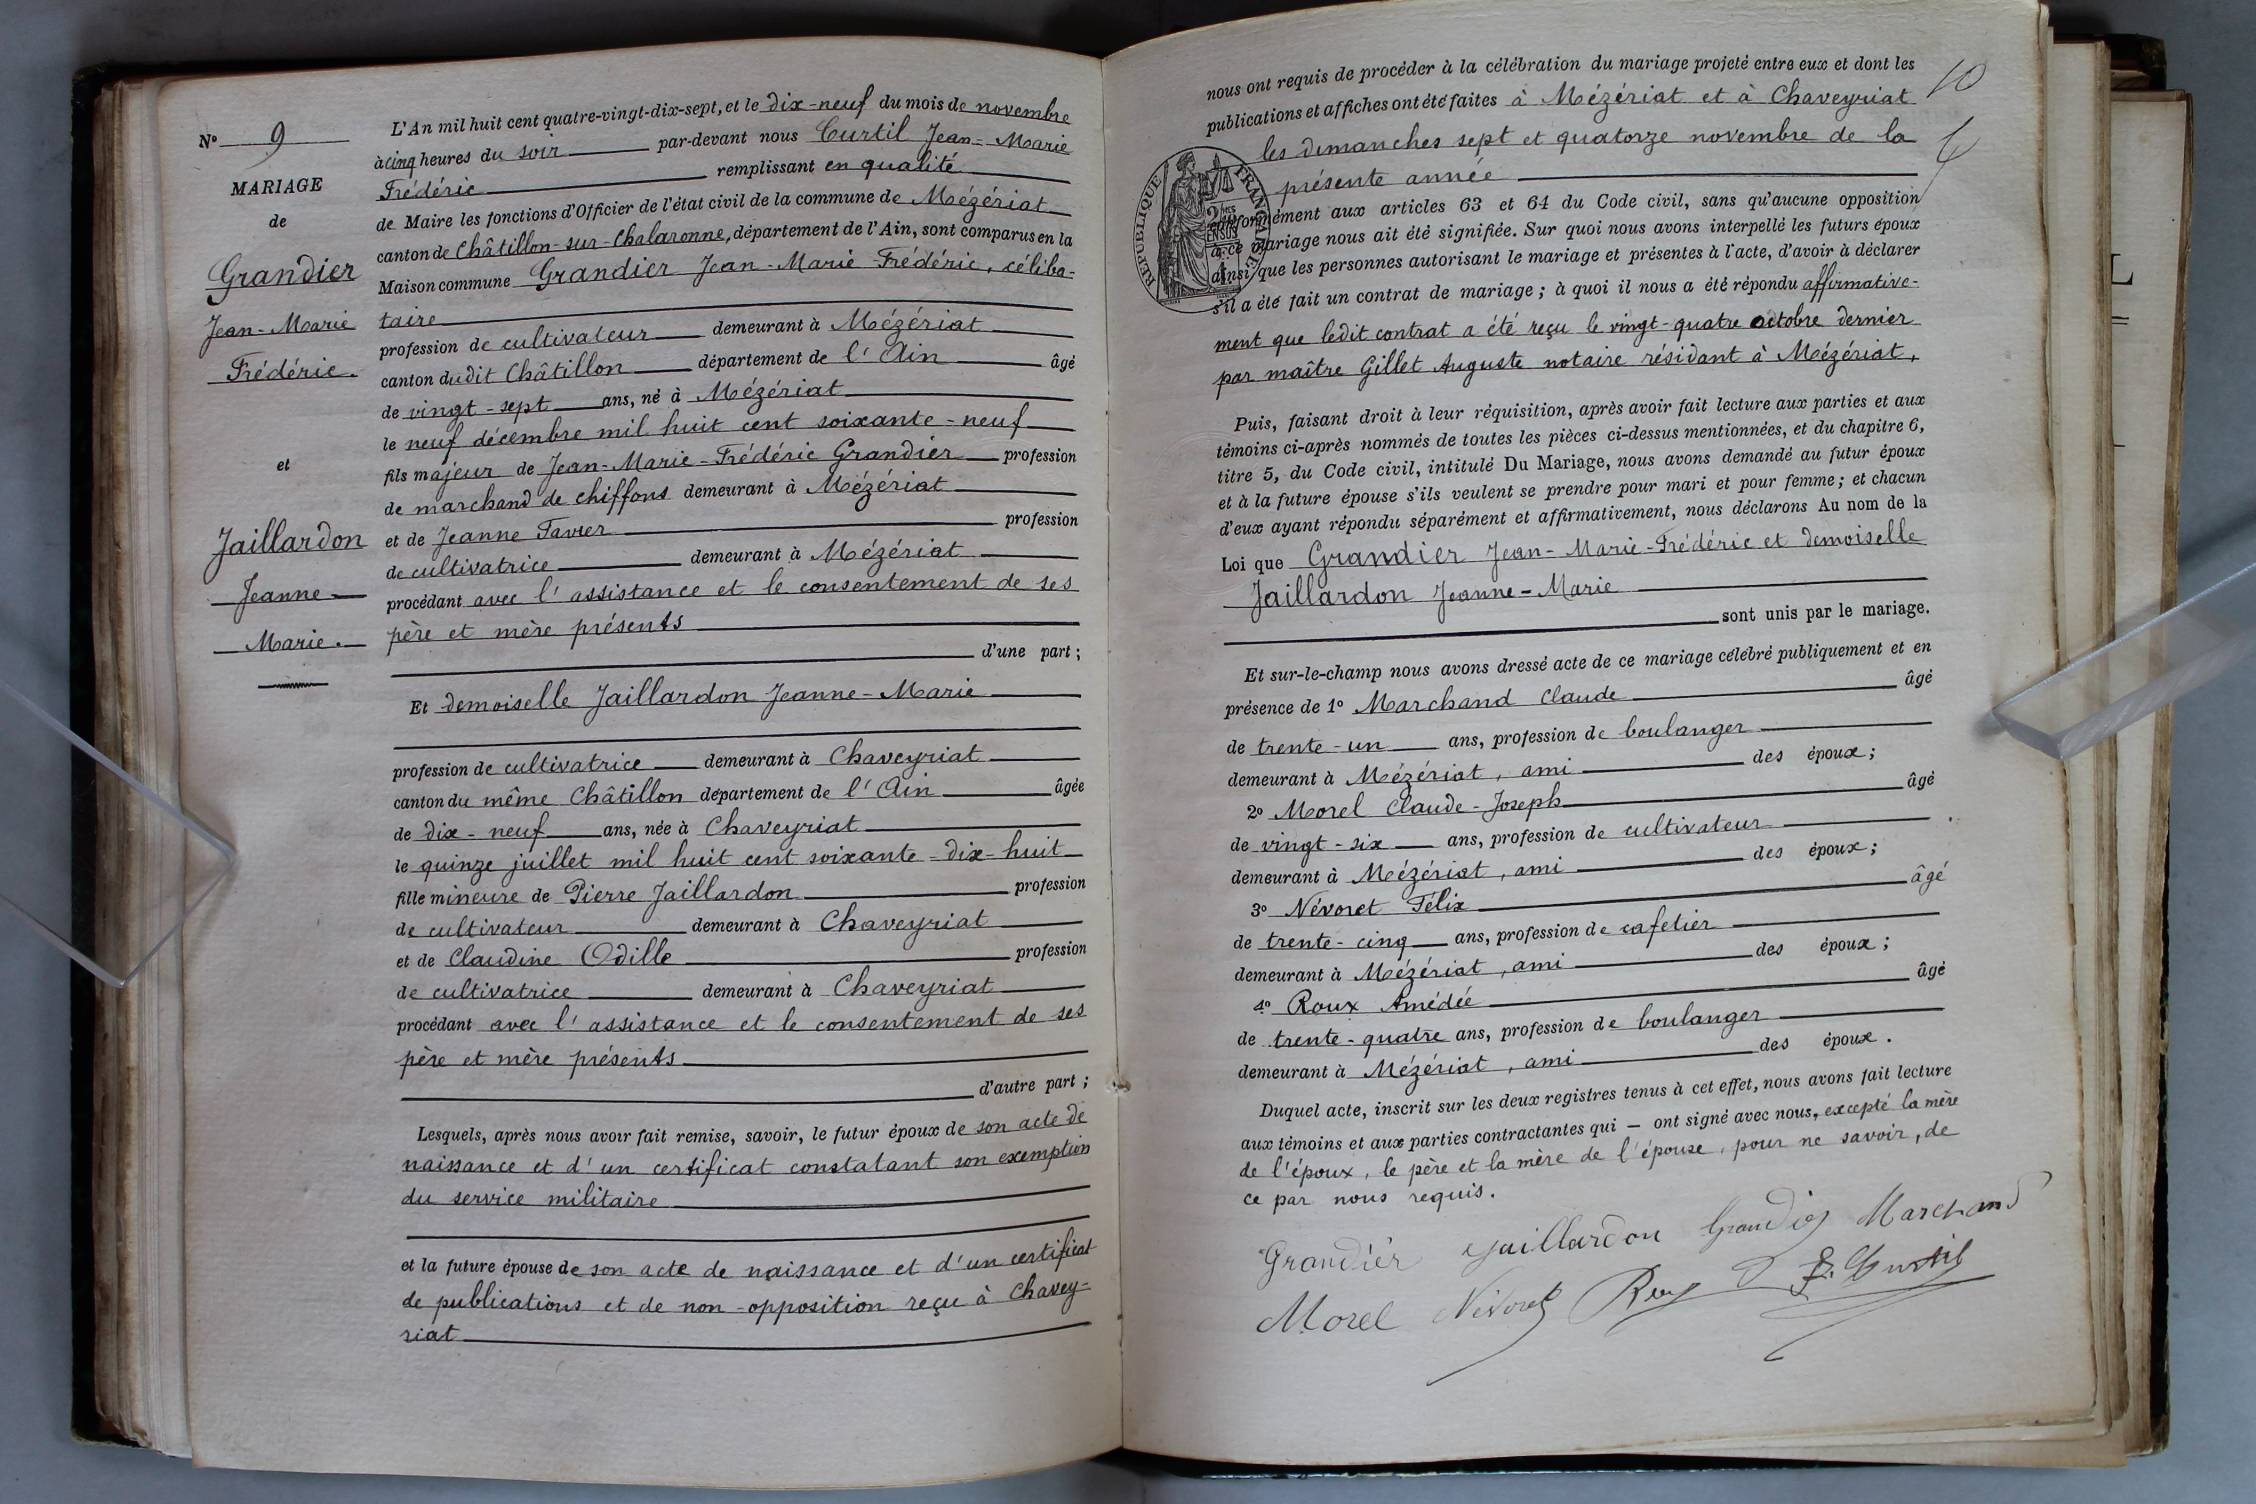 N° 9
MARIAGE
de
Grandier
Jean-Marie
Frédéric.
et
Jaillardon
Jeanne
Marie.
L'An mil huit cent quatre-vingt-dix-sept, et le dix-neuf du mois de novembre
à cinq heures du soir par-devant nous Curtil Jean-Marie
Frédéric remplissant en qualité
de Maire les fonctions d'Officier de l'état civil de la commune de Mézériat
canton de Châtillon-sur-Chalaronne, département de l'Ain, sont comparus en la
Maison commune Grandier Jean-Marie-Frédéric, céliba-
taire
profession de cultivateur demeurant à Mézériat
canton dudit Châtillon département de l'Ain âgé
de vingt-sept ans, né à Mézériat
le neuf décembre mil huit cent soixante-neuf
fils majeur de Jean-Marie-Frédéric Grandier profession
de marchand de chiffons demeurant à Mézériat
et de Jeanne Favier profession
de cultivatrice demeurant à Mézériat
procédant avec l'assistance et le consentement de ses
père et mère présents
d'une part ;
Et demoiselle Jaillardon Jeanne-Marie
profession de cultivatrice demeurant à Chaveyriat
canton du même Châtillon département de l'Ain âgée
de dix-neuf ans, née à Chaveyriat
le quinze juillet mil huit cent soixante-dix-huit
fille mineure de Pierre Jaillardon profession
de cultivateur demeurant à Chaveyriat
et de Claudine Odille profession
de cultivatrice demeurant à Chaveyriat
procédant avec l'assistance et le consentement de ses
père et mère présents
d'autre part ;
Lesquels, après nous avoir fait remise, savoir, le futur époux de son acte de
naissance et d'un certificat constatant son exemption
du service militaire
et la future épouse de son acte de naissance et d'un certificat
de publications et de non-opposition reçu à Chavey-
riat
10
nous ont requis de procéder à la célébration du mariage projeté entre eux et dont les
publications et affiches ont été faites à Mézériat et à Chaveyriat
les dimanches sept et quatorze novembre de la
présente année
RÉPUBLIQUE FRANÇAISE
conformément aux articles 63 et 64 du Code civil, sans qu'aucune opposition
à ce mariage nous ait été signifiée. Sur quoi nous avons interpellé les futurs époux
ainsi que les personnes autorisant le mariage et présentes à l'acte, d'avoir à déclarer
s'il a été fait un contrat de mariage ; à quoi il nous a été répondu affirmative-
ment que ledit contrat a été reçu le vingt-quatre octobre dernier
par maître Gillet Auguste notaire résidant à Mézériat.
Puis, faisant droit à leur réquisition, après avoir fait lecture aux parties et aux
témoins ci-après nommés de toutes les pièces ci-dessus mentionnées, et du chapitre 6,
titre 5, du Code civil, intitulé Du Mariage, nous avons demandé au futur époux
et à la future épouse s'ils veulent se prendre pour mari et pour femme ; et chacun
d'eux ayant répondu séparément et affirmativement, nous déclarons Au nom de la
Loi que Grandier Jean-Marie-Frédéric et demoiselle
Jaillardon Jeanne-Marie
sont unis par le mariage.
Et sur-le-champ nous avons dressé acte de ce mariage célébré publiquement et en
présence de 1° Marchand Claude âgé
de trente-un ans, profession de boulanger
demeurant à Mézériat, ami des époux ;
2° Morel Claude-Joseph âgé
de vingt-six ans, profession de cultivateur
demeurant à Mézériat, ami des époux ;
3° Névoret Félix âgé
de trente-cinq ans, profession de cafetier
demeurant à Mézériat, ami des époux ;
4° Roux Amédée âgé
de trente-quatre ans, profession de boulanger
demeurant à Mézériat, ami des époux.
Duquel acte, inscrit sur les deux registres tenus à cet effet, nous avons fait lecture
aux témoins et aux parties contractantes qui — ont signé avec nous, excepté la mère
de l'époux, le père et la mère de l'épouse, pour ne savoir, de
ce par nous requis.
Grandier Jaillardon Grandier Marchand
Morel Névoret Roux F. Curtil